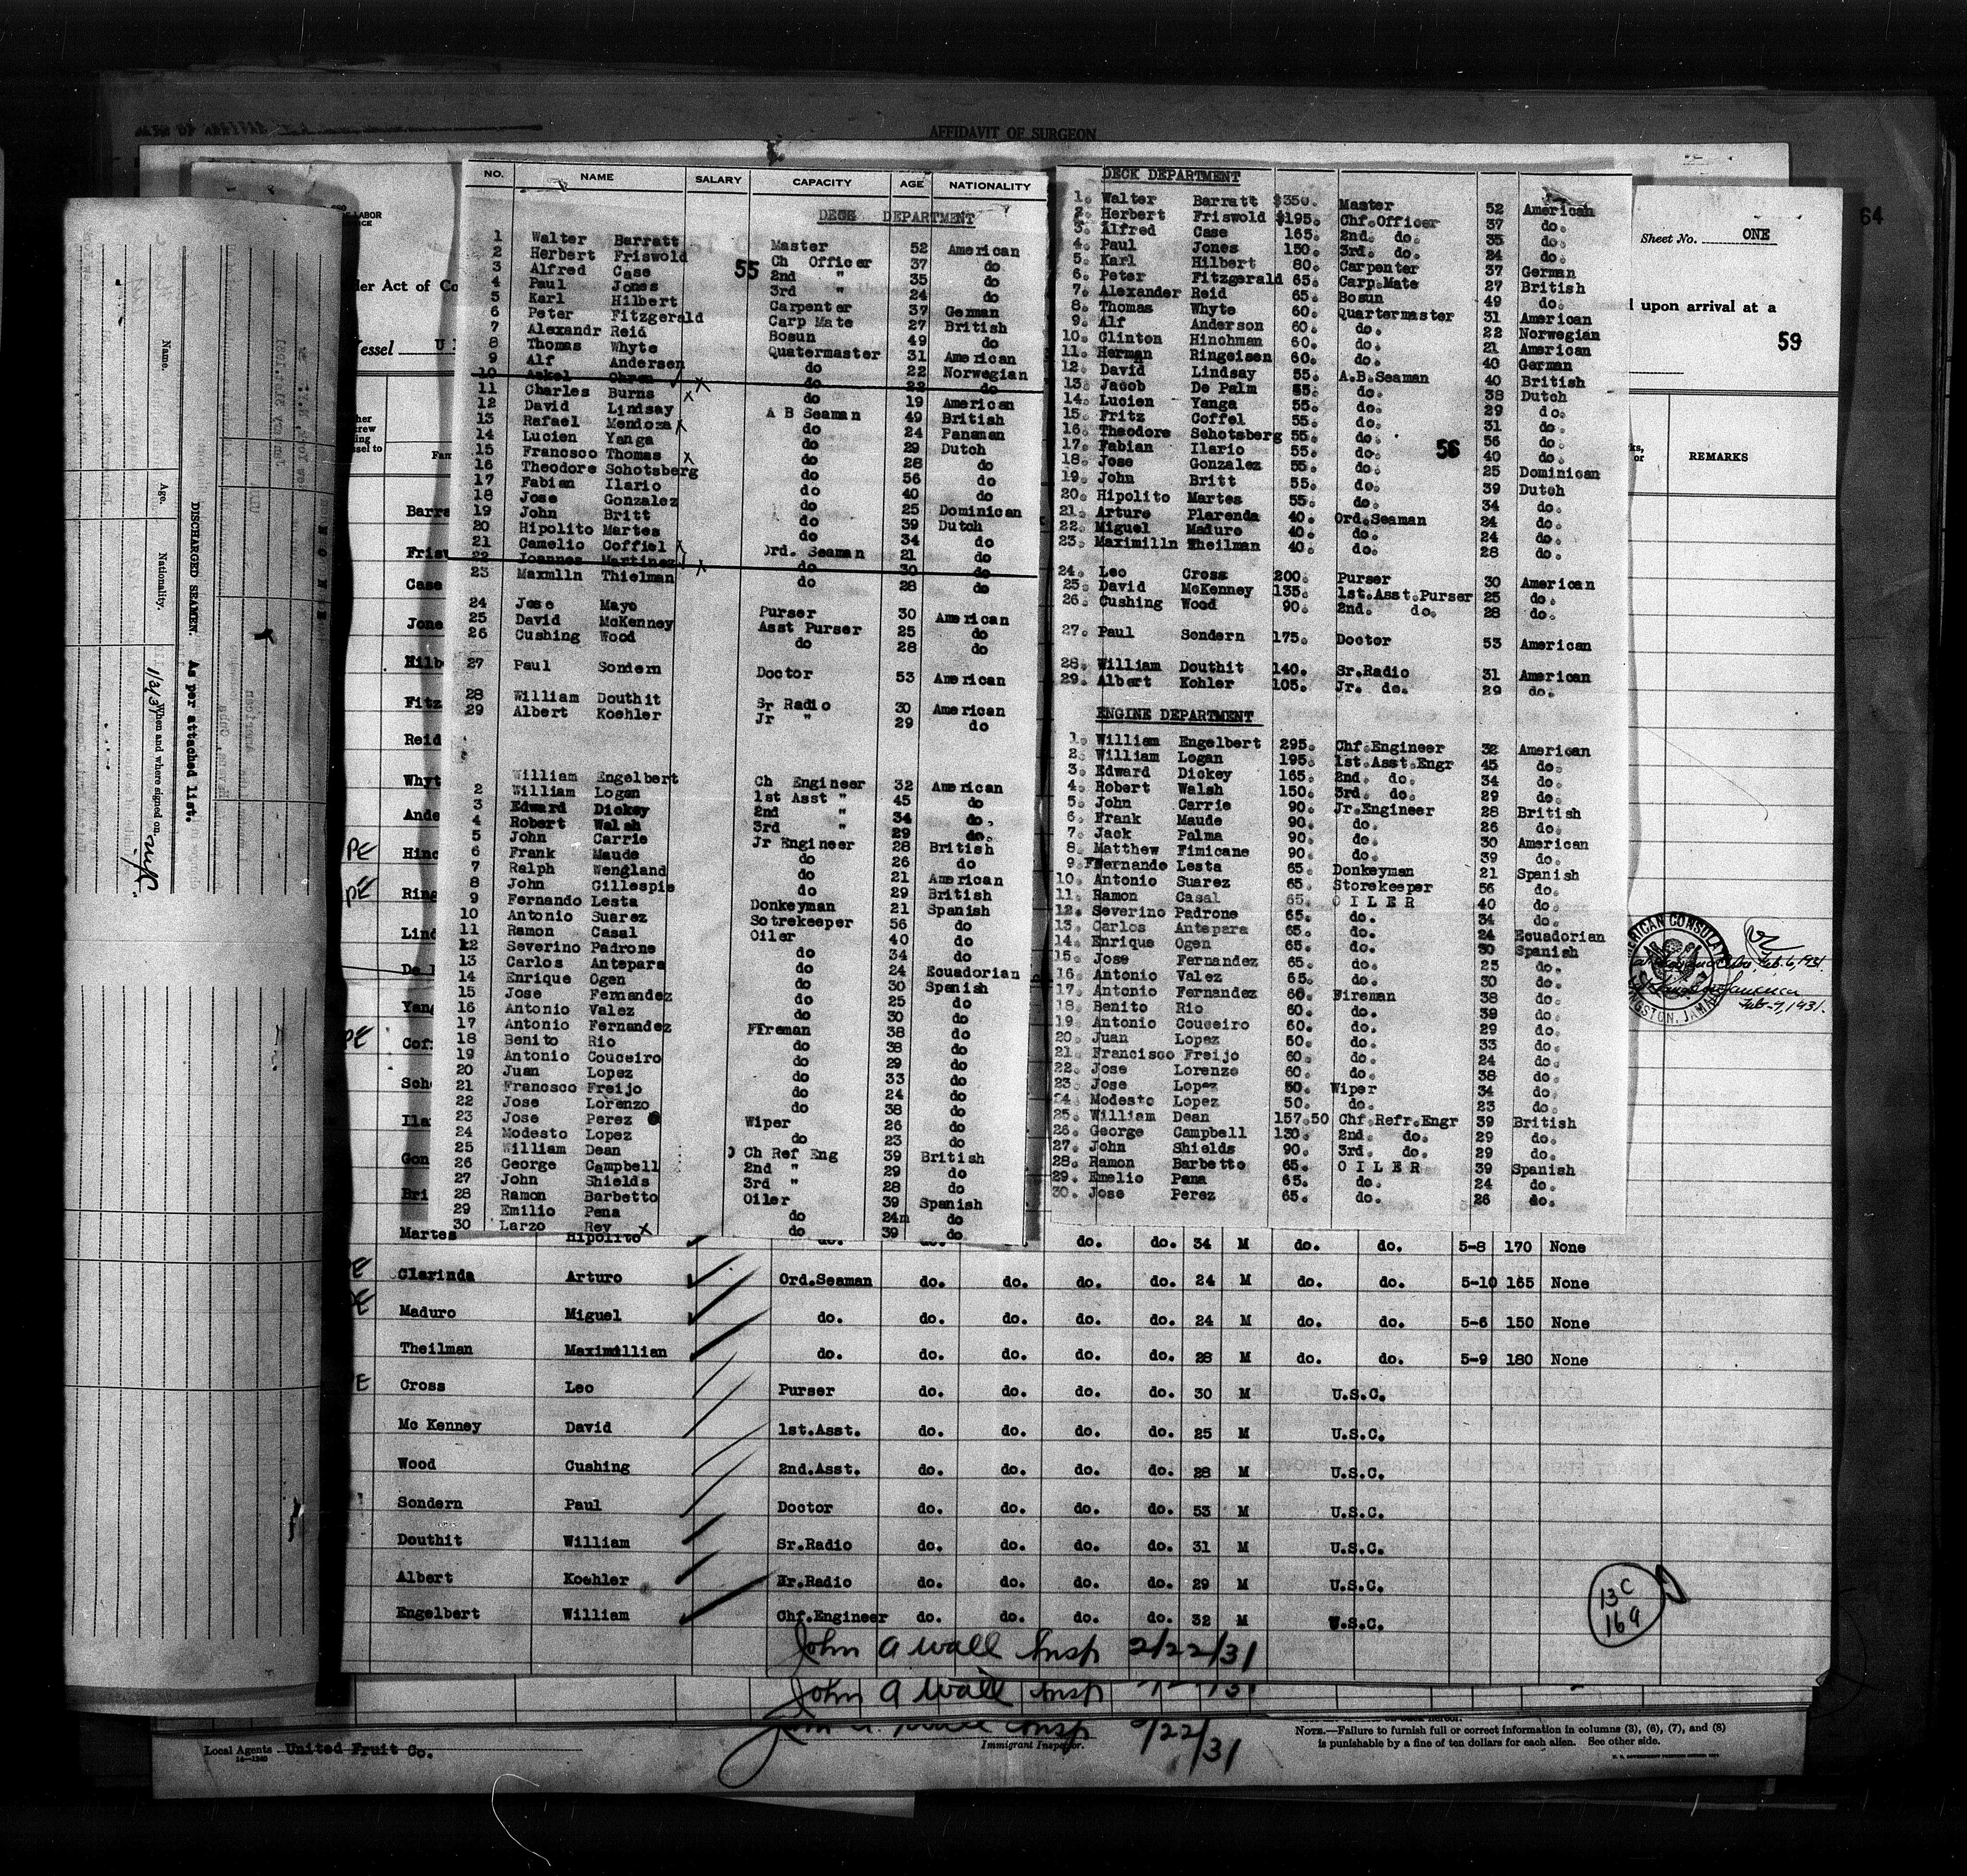 AFFIDAVIT OF SURGEON
NO. NAME SALARY CAPACITY AGE NATIONALITY
DECK DEPARTMENT
55
1 Walter Barratt Master 52 American
2 Herbert Friswold Ch Officer 37 do
3 Alfred Case 2nd " 35 do
4 Paul Jones 3rd " 24 do
5 Karl Hilbert Carpenter 37 German
6 Peter Fitzgerald Carp Mate 27 British
7 Alexandr Reid Bosun 49 do
8 Thomas Whyte Quatermaster 31 American
9 Alf Andersen do 22 Norwegian
10 do 22 do
11 Charles Burns X do 19 American
12 David Lindsay A B Seaman 49 British
13 Rafael Mendoza do 24 Panaman
14 Lucien Yanga do 29 Dutch
15 Francsco Thomas X do 28 do
16 Theodore Schotsberg do 56 do
17 Fabian Ilario do 40 do
18 Jose Gonzalez do 25 Dominican
19 John Britt do 39 Dutch
20 Hipolito Martes do 34 do
21 Camelio Coffiel Ord. Seaman 21 do
22 Ioannes Martinez do 30 do
23 Maxmlln Thielman do 28 do
24 Jose Mayo Purser 30 American
25 David McKenney Asst Purser 25 do
26 Cushing Wood do 28 do
27 Paul Sondern Doctor 53 American
28 William Douthit Sr Radio 30 American
29 Albert Koehler Jr " 29 do
William Engelbert Ch Engineer 32 American
2 William Logan 1st Asst " 45 do
3 Edward Dickey 2nd " 34 do.
4 Robert Walsh 3rd " 29 do.
5 John Carrie Jr Engineer 28 British
6 Frank Maude do 26 do
7 Ralph Wengland do 21 American
8 John Gillespie do 29 British
9 Fernando Lesta Donkeyman 21 Spanish
10 Antonio Suarez Sotrekeeper 56 do
11 Ramon Casal Oiler 40 do
12 Severino Padrone do 34 do
13 Carlos Antepara do 24 Ecuadorian
14 Enrique Ogen do 30 Spanish
15 Jose Fernandez do 25 do
16 Antonio Valez do 30 do
17 Antonio Fernandez FIreman 38 do
18 Benito Rio do 38 do
19 Antonio Couceiro do 29 do
20 Juan Lopez do 33 do
21 Francsco Freijo do 24 do
22 Jose Lorenzo do 38 do
23 Jose Perez Wiper 26 do
24 Modesto Lopez do 23 do
25 William Dean Ch Ref Eng 39 British
26 George Campbell 2nd " 29 do
27 John Shields 3rd " 28 do
28 Ramon Barbetto Oiler 39 Spanish
29 Emilio Pena do 24m do
30 Larzo Rey X do 39 do
DECK DEPARTMENT
1. Walter Barratt $350. Master 52 American
2. Herbert Friswold $195. Chf.Officer 37 do.
3. Alfred Case 165. 2nd. do. 35 do.
4. Paul Jones 150. 3rd. do. 24 do.
5. Karl Hilbert 80. Carpenter 37 German
6. Peter Fitzgerald 65. Carp.Mate 27 British
7. Alexander Reid 65. Bosun 49 do.
8. Thomas Whyte 60. Quartermaster 31 American
9. Alf Anderson 60. do. 22 Norwegian
10. Clinton Hinchman 60. do. 21 American
11. Herman Ringeisen 60. do. 40 German
12. David Lindsay 55. A.B.Seaman 40 British
13. Jacob De Palm 55. do. 38 Dutch
14. Lucien Yanga 55. do. 29 do.
15. Fritz Coffel 55. do. 31 do.
16. Theodore Schotsberg 55. do. 56 do.
17. Fabian Ilario 55. do. 40 do.
56
18. Jose Gonzalez 55. do. 25 Dominican
19. John Britt 55. do. 39 Dutch
20. Hipolito Martes 55. do. 34 do.
21. Arturo Plarenda 40. Ord.Seaman 24 do.
22. Miguel Maduro 40. do. 24 do.
23. Maximilln Theilman 40. do. 28 do.
24. Leo Cross 200. Purser 30 American
25. David McKenney 135. 1st.Asst.Purser 25 do.
26. Cushing Wood 90. 2nd. do. 28 do.
27. Paul Sondern 175. Doctor 53 American
28. William Douthit 140. Sr.Radio 31 American
29. Albert Kohler 105. Jr. do. 29 do.
ENGINE DEPARTMENT
1. William Engelbert 295. Chf.Engineer 32 American
2. William Logan 195. 1st.Asst.Engr 45 do.
3. Edward Dickey 165. 2nd. do. 34 do.
4. Robert Walsh 150. 3rd. do. 29 do.
5. John Carrie 90. Jr.Engineer 28 British
6. Frank Maude 90. do. 26 do.
7. Jack Palma 90. do. 30 American
8. Matthew Fimicane 90. do. 39 do.
9. Fernando Lesta 65. Donkeyman 21 Spanish
10. Antonio Suarez 65. Storekeeper 56 do.
11. Ramon Casal 65. O I L E R 40 do.
12. Severino Padrone 65. do. 34 do.
13. Carlos Antepara 65. do. 24 Ecuadorian
14. Enrique Ogen 65. do. 30 Spanish
15. Jose Fernandez 65. do. 25 do.
16. Antonio Valez 65. do. 30 do.
17. Antonio Fernandez 60. Fireman 38 do.
18. Benito Rio 60. do. 39 do.
19. Antonio Couceiro 60. do. 29 do.
20. Juan Lopez 50. do. 33 do.
21. Francisco Freijo 60. do. 24 do.
22. Jose Lorenzo 60. do. 38 do.
23. Jose Lopez 50. Wiper 34 do.
24. Modesto Lopez 50. do. 23 do.
25. William Dean 157.50 Chf.Refr.Engr 39 British
26. George Campbell 130. 2nd. do. 29 do.
27. John Shields 90. 3rd. do. 29 do.
28. Ramon Barbetto 65. O I L E R 39 Spanish
29. Emelio Pena 65. do. 24 do.
30. Jose Perez 65. do. 26 do.
64
Sheet No. ONE
der Act of Co
d upon arrival at a
59
essel U
REMARKS
Fam
Barra
Frisw
Case
Jone
Hilb
Fitz
Reid
Whyt
Ande
PE Hinc
PE Ring
Lind
Yang
PE Coff
Scho
Ila
Gon
Bri
AMERICAN CONSULA
KINGSTON, JAMAI
Martes Hipolito do. do. do. do. do. 34 M do. do. 5-8 170 None
PE Clarinda Arturo Ord.Seaman do. do. do. do. 24 M do. do. 5-10 165 None
PE Maduro Miguel do. do. do. do. do. 24 M do. do. 5-6 150 None
Theilman Maximillian do. do. do. do. do. 28 M do. do. 5-9 180 None
PE Cross Leo Purser do. do. do. do. 30 M U.S.C.
Mc Kenney David 1st.Asst. do. do. do. do. 25 M U.S.C.
Wood Cushing 2nd.Asst. do. do. do. do. 28 M U.S.C.
Sondern Paul Doctor do. do. do. do. 53 M U.S.C.
Douthit William Sr.Radio do. do. do. do. 31 M U.S.C.
Albert Koehler Jr.Radio do. do. do. do. 29 M U.S.C.
Engelbert William Chf.Engineer do. do. do. do. 32 M U.S.C.
13C
169
John A Wall Insp 2/22/31
John A Wall Insp
Insp /22/31
Local Agents United Fruit Co.
Immigrant Inspector.
NOTE.—Failure to furnish full or correct information in columns (3), (6), (7), and (8)
is punishable by a fine of ten dollars for each alien. See other side.
DISCHARGED SEAMEN. As per attached list.
Name. Age. Nationality. When and where signed on.
1/31/31